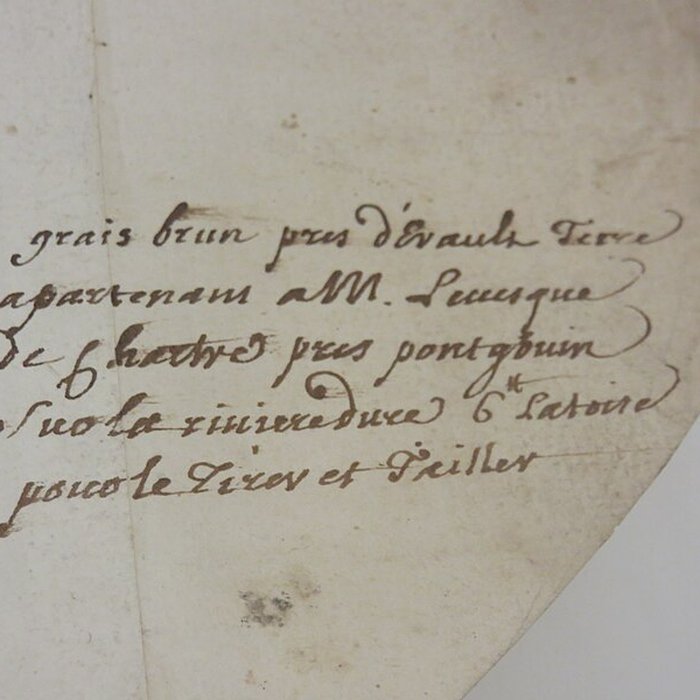 grais brun pres d'Evault Terre
apartenant a M. Levesque
de Chartre pres pontgouin
sur la riviere dure 6tt Latoise
pour le Tirer et Tailler